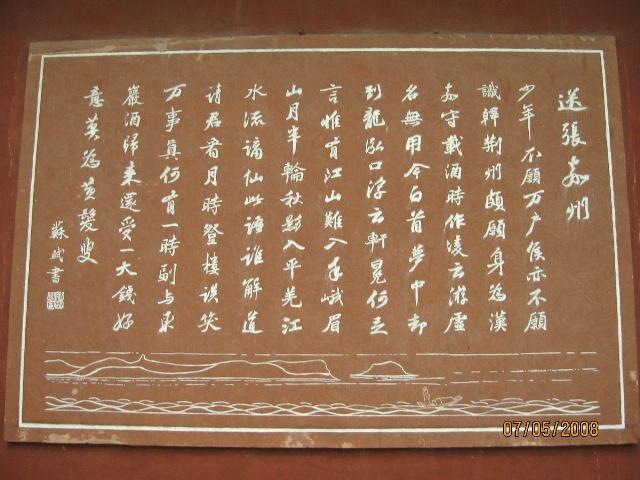 送張嘉州
少年不願万户侯亦不願
識韓荆州頗願身為漢
嘉守載酒時作凌云游虚
名無用今白首夢中却
到龍泓口浮云軒冕何足
言惟有江山難入手峨眉
山月半輪秋影入平羌江
水流謫仙此語誰解道
請君看月時登樓談笑
万事真何有一時副与東
巖酒歸来還受一大錢好
意莫為黄髮叟
蘇軾書
07/05/2008